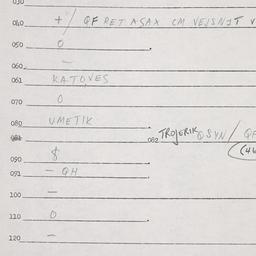 030
040 + / QF RET ASAX CM VEJSNJT V
050 0
060 —
061 KATOVES
070 0
080 UMETIK
081 082 TROJERIK QSYN / QF
090 $ (44
091 — QH
100 —
110 0
120 —